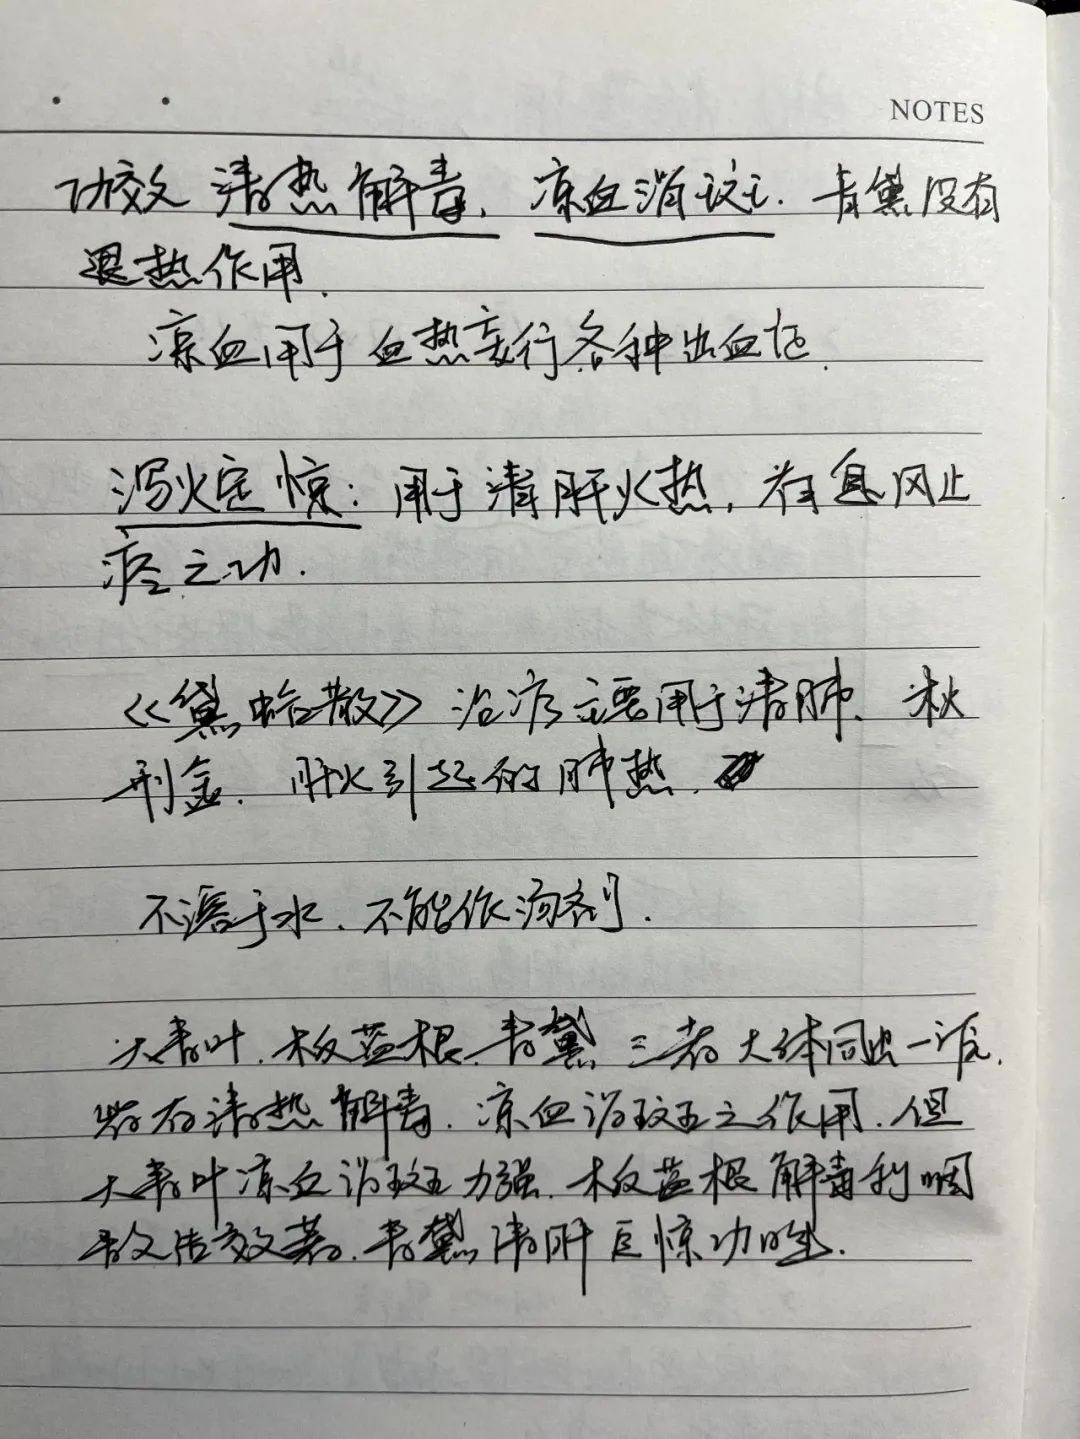 NOTES
功效 清热解毒、凉血消斑. 青黛没有
退热作用.
凉血用于血热妄行各种出血证.
泻火定惊: 用于清肝火热, 有息风止
痉之功.
《黛蛤散》治疗主要用于清肺. 木火
刑金. 肝火引起的肺热.
不溶于水. 不能作汤剂.
大青叶. 板蓝根. 青黛 三者大体同出一源.
皆有清热解毒. 凉血消斑之作用. 但
大青叶凉血消斑力强. 板蓝根解毒利咽
散结效著. 青黛清肝定惊功胜.